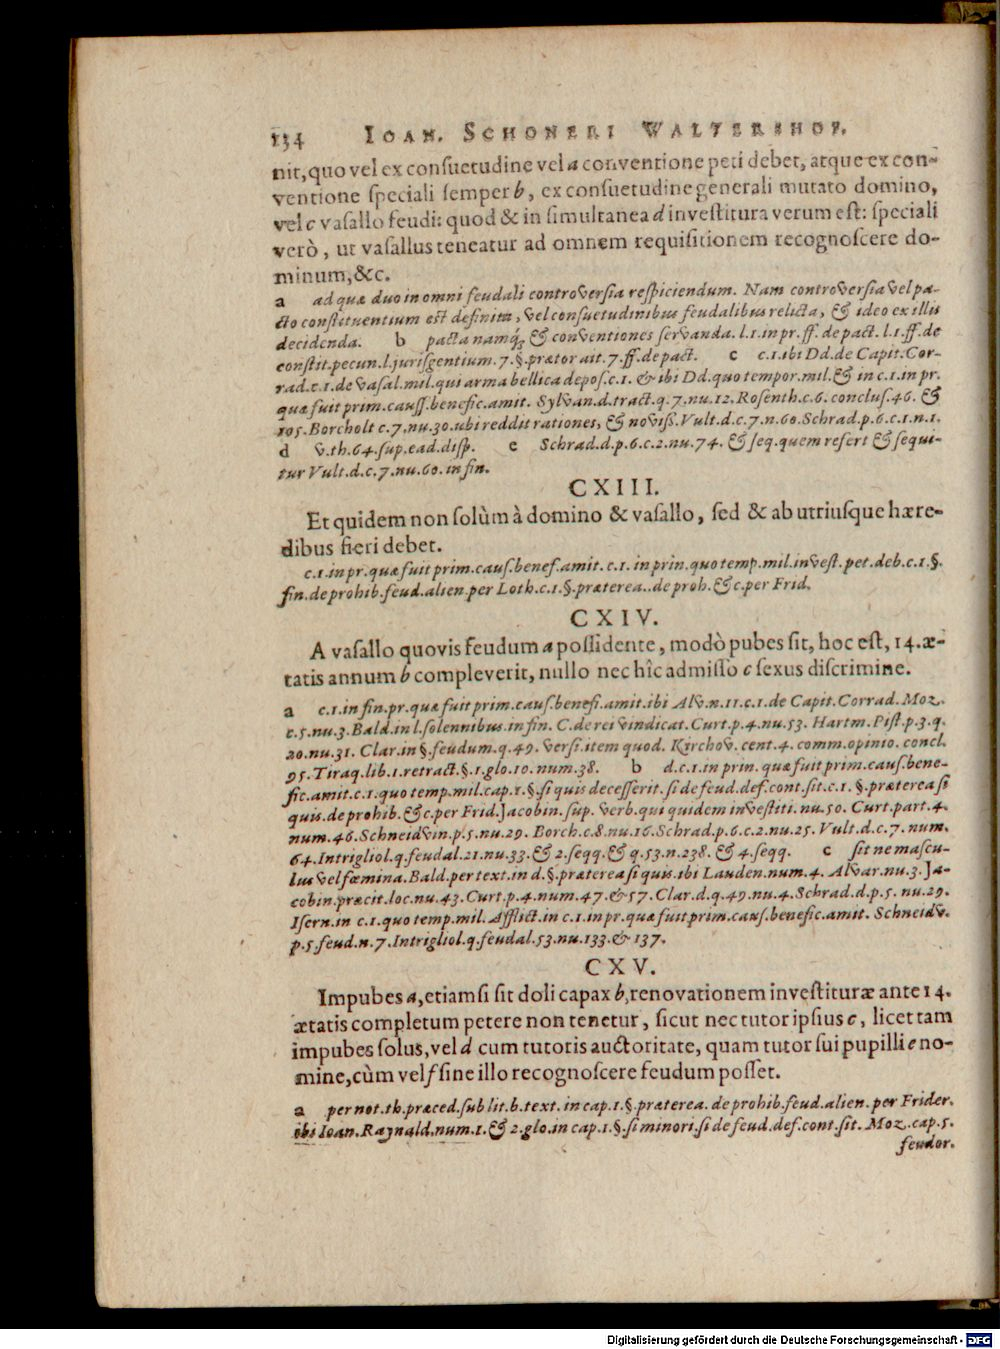 134 IOAN. SCHONERI WALTERSHOF.
nit, quo vel ex consuetudine vel a conventione peti debet, atque ex con-
ventione speciali semper b, ex consuetudine generali mutato domino,
vel c vasallo feudi: quod & in simultanea d investitura verum est: speciali
verò, ut vasallus teneatur ad omnem requisitionem recognoscere do-
minum, &c.
a ad quæ duo in omni feudali controversia respiciendum. Nam controversia vel pa-
cto constituentium est definita, vel consuetudinibus feudalibus relicta, & ideo ex illis
decidenda. b pacta namq́; & conventiones servanda. l.1.in pr. ff. de pact. l.1.ff.de
constit.pecun.l.jurisgentium.7.§.prætor ait.7.ff.de pact. c c.1.ibi Dd.de Capit.Cor-
rad.c.1.de vasal.mil.qui arma bellica depos.c.1. & ibi Dd.quo tempor.mil.& in c.1.in pr.
quæ fuit prim.causs.benefic.amit. Sylvan.d.tract.q.7.nu.12. Rosenth.c.6.conclus.46. &
105.Borcholt c.7.nu.30.ubi reddit rationes, & noviss.Vult.d.c.7.n.60.Schrad.p.6.c.1.n.1.
d v.th.64.sup.ead.disp. e Schrad.d.p.6.c.2.nu.74. & seq.quem refert & sequi-
tur Vult.d.c.7.nu.60.in fin.
CXIII.
Et quidem non solùm à domino & vasallo, sed & ab utriusque hære-
dibus fieri debet.
c.1.in pr.quæ fuit prim.caus.benef.amit. c.1. in prin.quo temp.mil.invest.pet.deb.c.1.§.
fin.de prohib.feud.alien.per Loth.c.1.§.præterea..de proh.& c.per Frid.
CXIV.
A vasallo quovis feudum a possidente, modò pubes sit, hoc est, 14. æ-
tatis annum b compleverit, nullo nec hîc admisso c sexus discrimine.
a c.1.in fin.pr.quæ fuit prim.caus.benefi.amit.ibi Alv.n.11.c.1.de Capit.Corrad. Moz.
c.5.nu.3.Bald.in l.solennibus.in fin. C.de rei vindicat.Curt.p.4.nu.53. Hartm.Pist.p.3.q.
20.nu.31. Clar.in §.feudum.q.49. versi.item quod. Kirchov. cent.4. comm.opinio. concl.
95.Tiraq.lib.1.retract.§.1.glo.10.num.38. b d.c.1.in prin. quæ fuit prim.caus.bene-
fic.amit.c.1.quo temp.mil.cap.1.§.si quis decesserit.si de feud.def.cont.sit.c.1. §.præterea si
quis.de prohib.& c.per Frid.Jacobin.sup. verb.qui quidem investiti.nu.50. Curt.part.4.
num.46.Schneidvin.p.5.nu.29. Borch.c.8.nu.16.Schrad.p.6.c.2.nu.25. Vult.d.c.7. num.
64.Intrigliol.q.feudal.21.nu.33.& 2.seqq.& q.53.n.238. & 4.seqq. c sit ne mascu-
lus vel fœmina.Bald.per text.in d.§.præterea si quis.ibi Lauden.num.4. Alvar.nu.3.Ja-
cobin.præcit.loc.nu.43.Curt.p.4.num.47.& 57.Clar.d.q.49.nu.4.Schrad.d.p.5. nu.29.
Isern.in c.1.quo temp.mil.Afflict.in c.1.in pr.quæ fuit prim.caus.benefic.amit. Schneidv.
p.5.feud.n.7.Intrigliol.q.feudal.53.nu.133.& 137.
CXV.
Impubes a, etiamsi sit doli capax b, renovationem investituræ ante 14.
ætatis completum petere non tenetur, sicut nec tutor ipsius c, licet tam
impubes solus, vel d cum tutoris auctoritate, quam tutor sui pupilli e no-
mine, cùm vel f sine illo recognoscere feudum posset.
a per not.th.præced.sub lit.b.text.in cap.1.§.præterea.de prohib.feud.alien.per Frider.
ibi Ioan.Raynald.num.1.& 2.glo.in cap.1.§.si minori.si de feud.def.cont.sit. Moz.cap.5.
feudor.
Digitalisierung gefördert durch die Deutsche Forschungsgemeinschaft - DFG